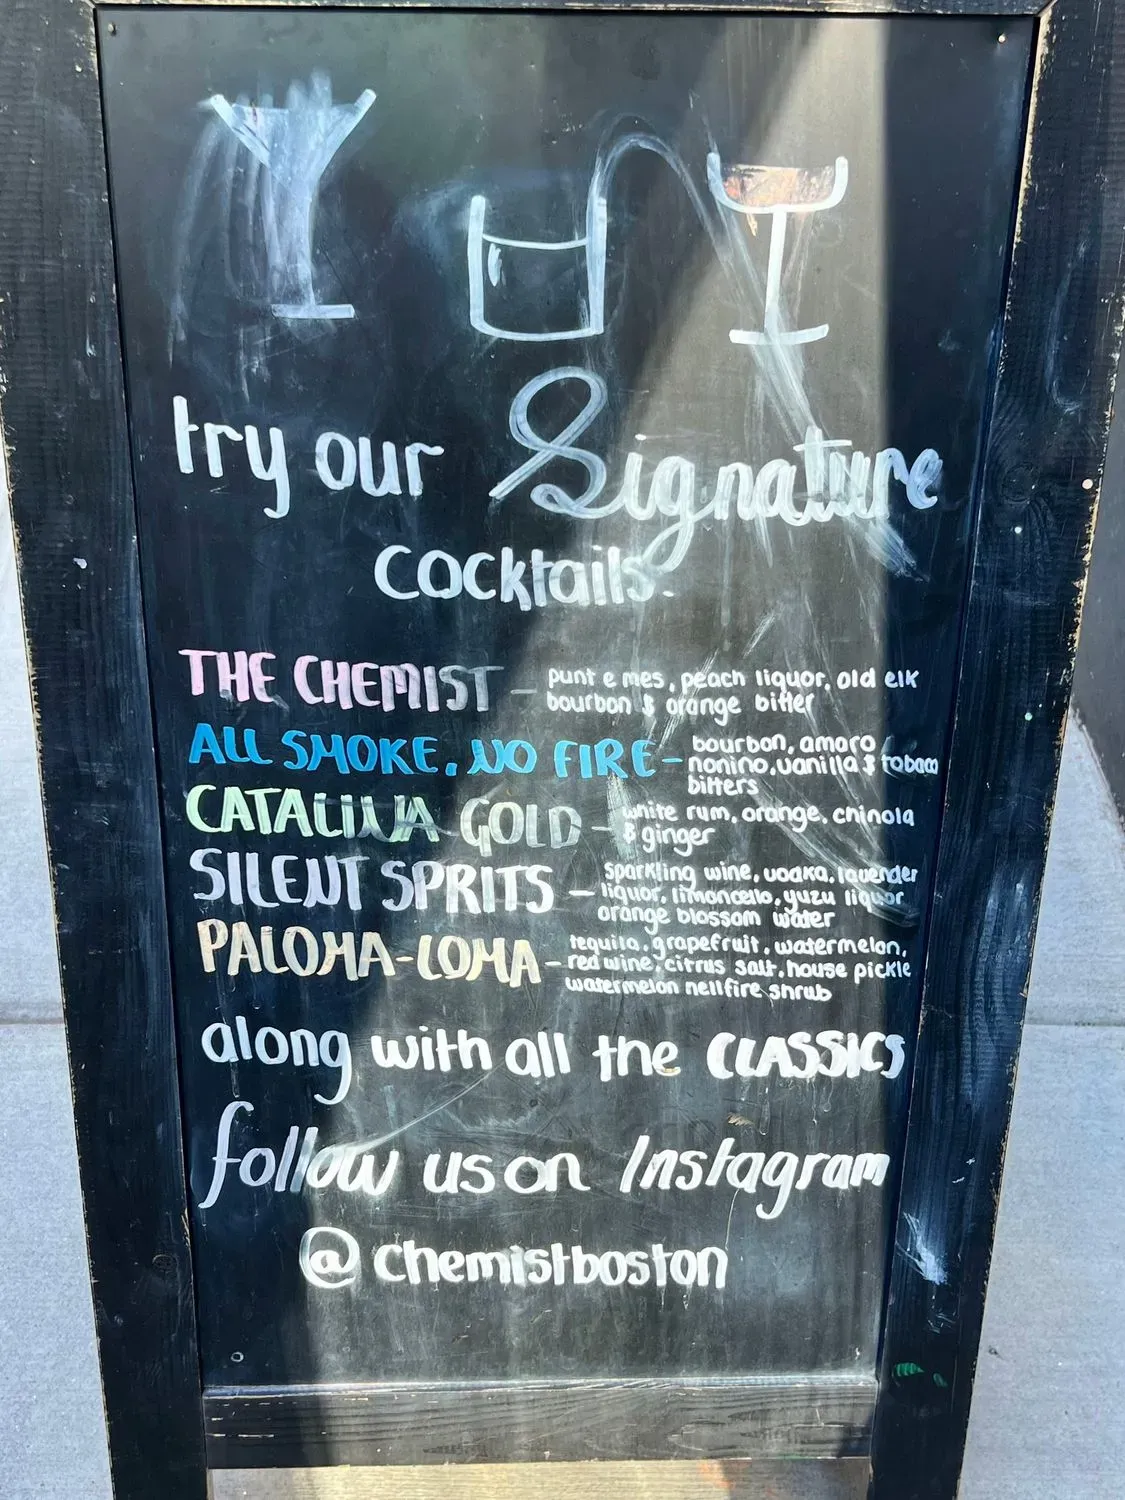 try our Signature
cocktails.
THE CHEMIST - punt e mes, peach liquor, old elk
bourbon & orange bitter
ALL SMOKE, NO FIRE - bourbon, amaro
nonino, vanilla & tobaco
bitters
CATALINA GOLD - white rum, orange, chinola
& ginger
SILENT SPRITS - sparkling wine, vodka, lavender
liquor, limoncello, yuzu liquor
orange blossom water
PALOMA-LOMA - tequila, grapefruit, watermelon,
red wine, citrus salt, house pickle
watermelon hellfire shrub
along with all the CLASSICS
follow us on Instagram
@chemistboston